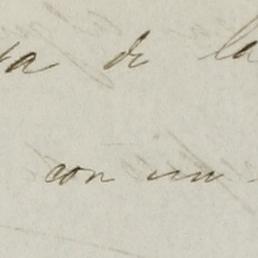 de la
con un